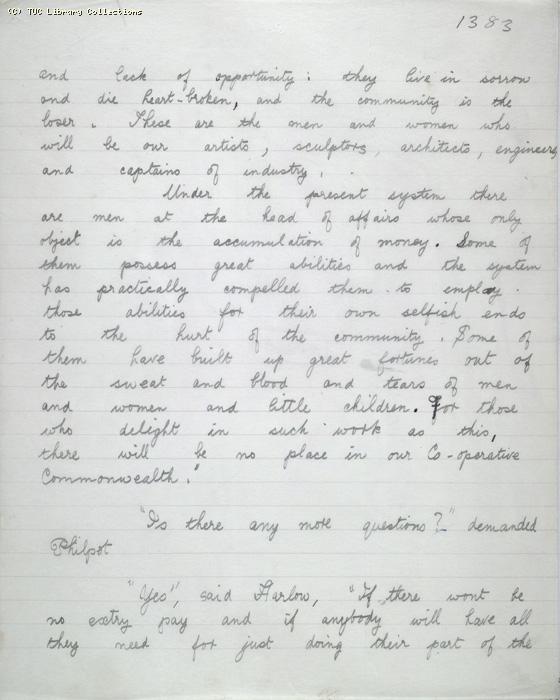 (C) TUC Library Collections
1383
and lack of opportunity: they live in sorrow
and die heart-broken, and the community is the
loser. These are the men and women who
will be our artists, sculptors, architects, engineers
and captains of industry.
Under the present system there
are men at the head of affairs whose only
object is the accumulation of money. Some of
them possess great abilities and the system
has practically compelled them to employ
those abilities for their own selfish ends
to the hurt of the community. Some of
them have built up great fortunes out of
the sweat and blood and tears of men
and women and little children. For those
who delight in such work as this,
there will be no place in our Co-operative
Commonwealth."
"Is there any more questions?" demanded
Philpot
"Yes", said Harlow, "If there wont be
no extry pay and if anybody will have all
they need for just doing their part of the